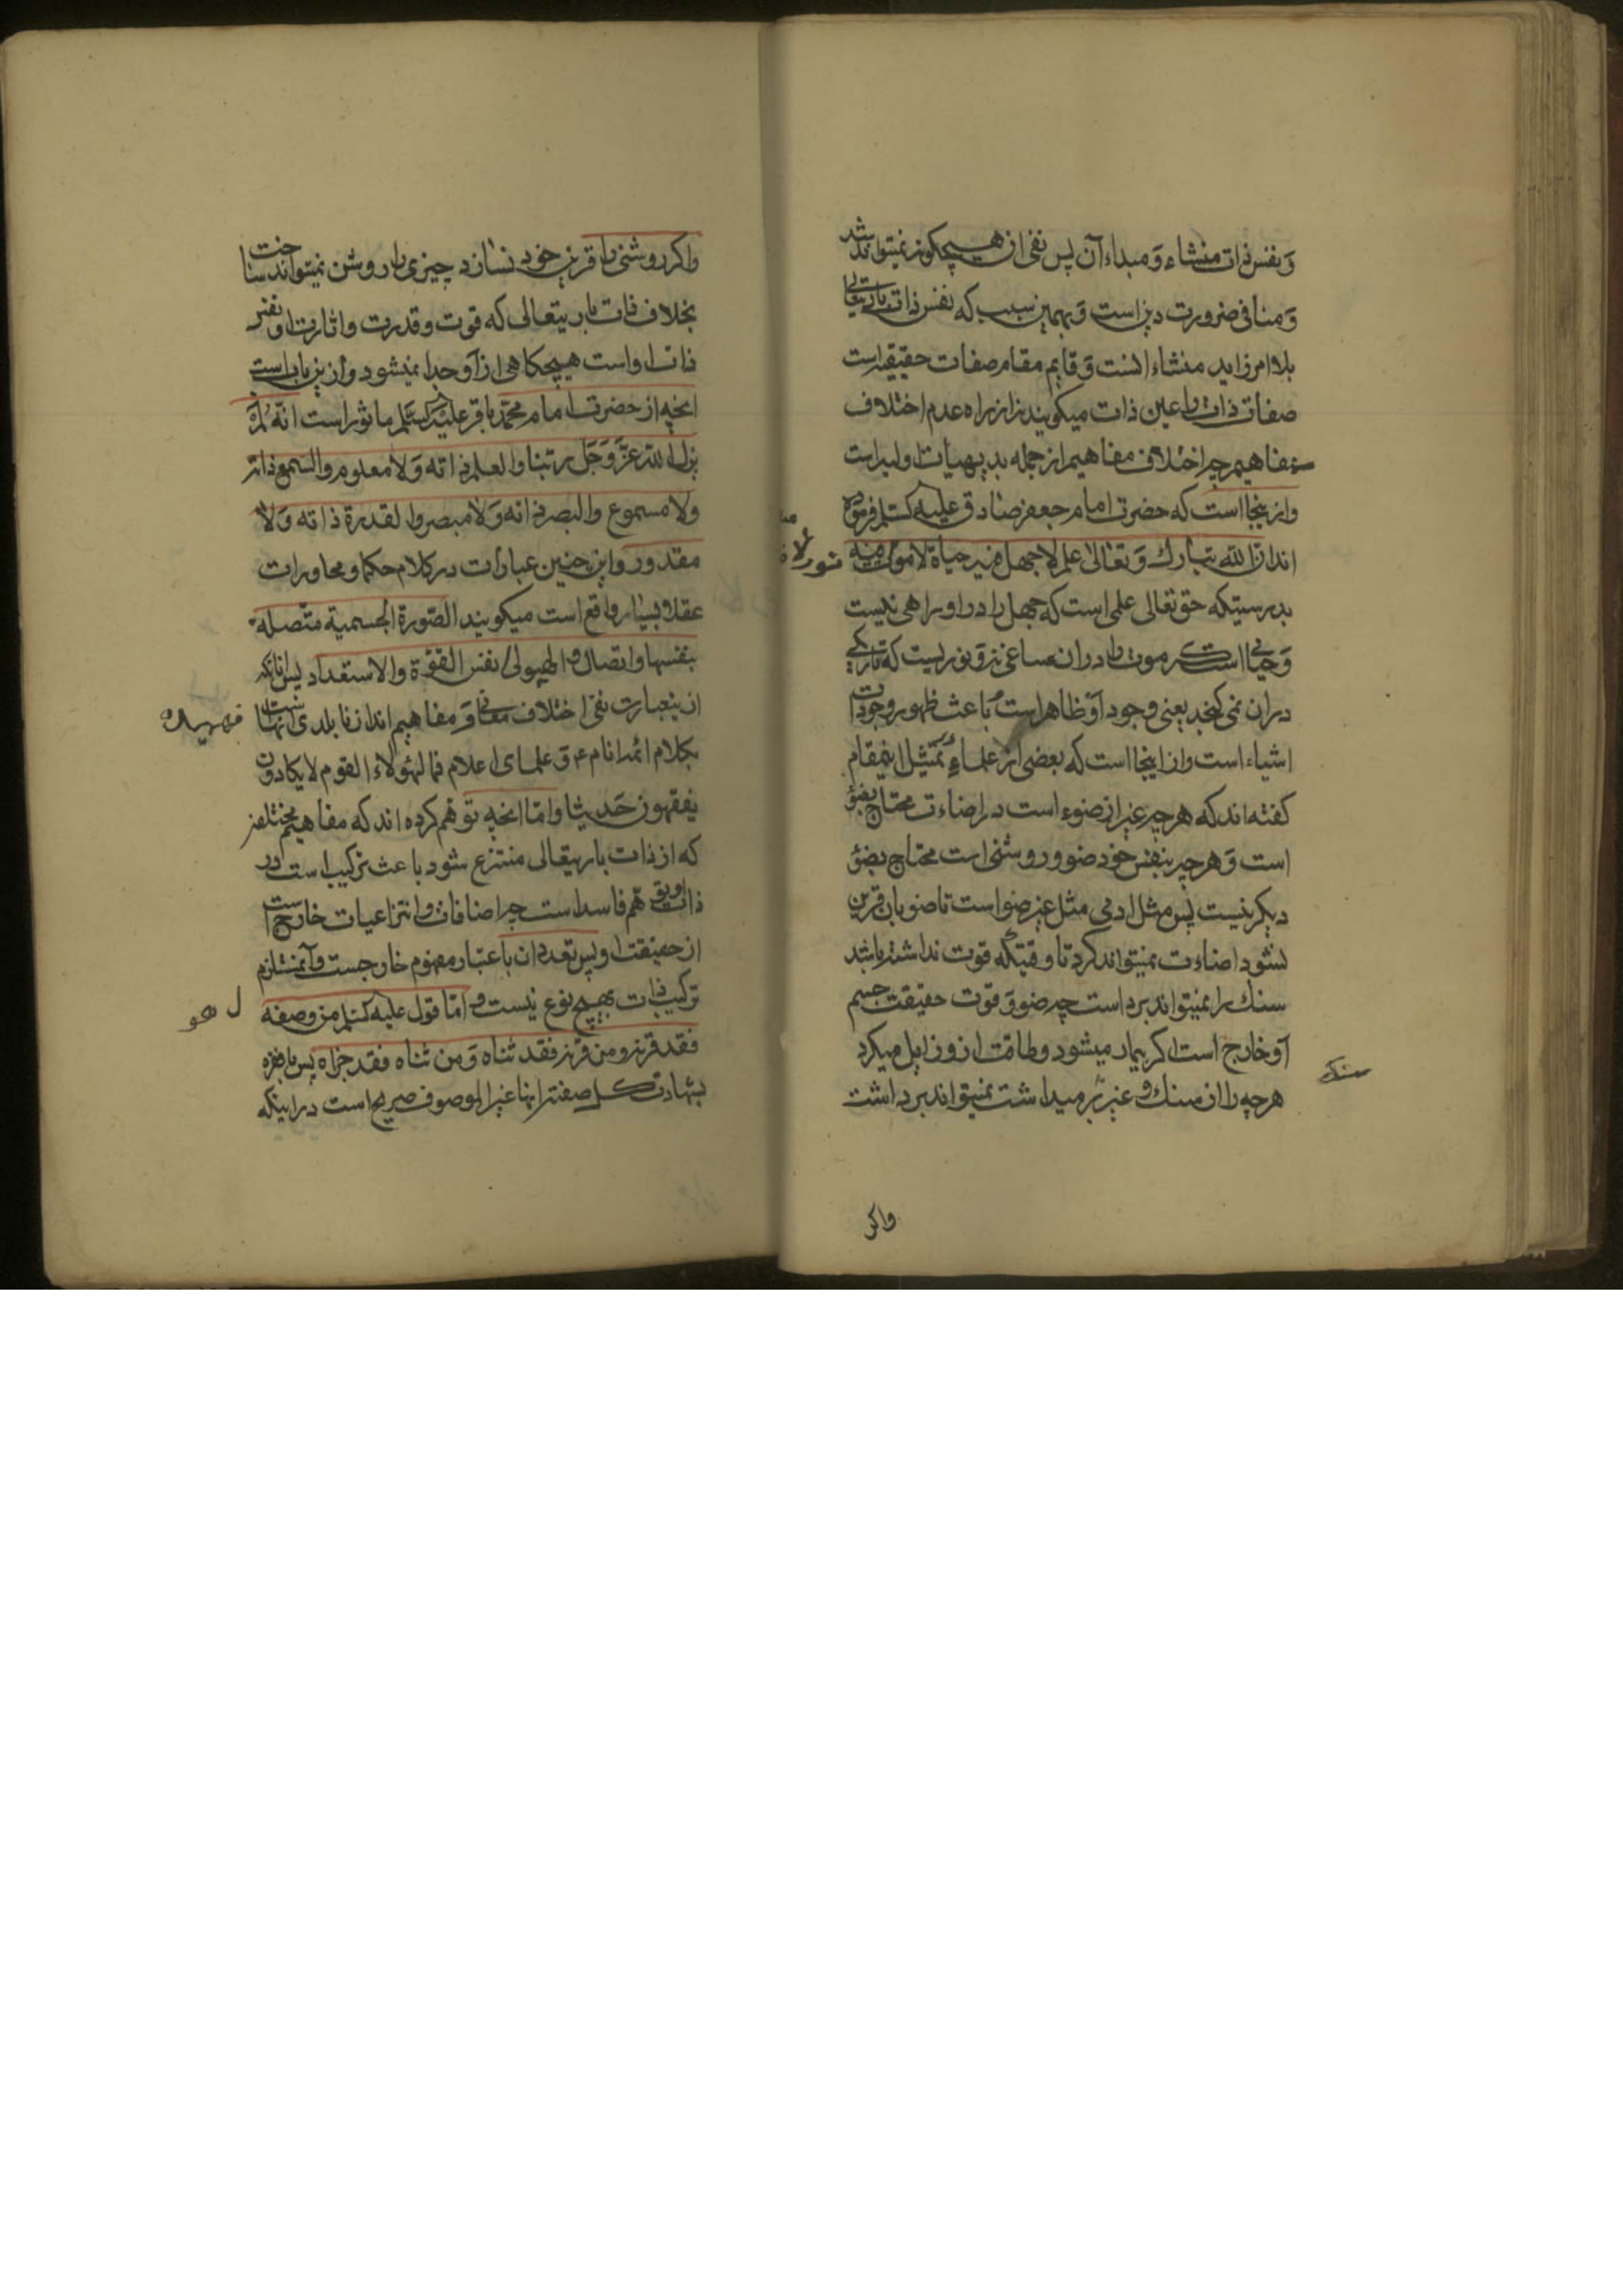 و نفس ذات منشاء و مبداء آن پس نفی از هیچکونه نمیتواند شد
و منافی ضرورت دین است و بهمین سبب که نفس ذات باریتعالی
بلا امر زاید منشاء انست و قایم مقام صفات حقیقیه است
صفات ذات را عین ذات میکویند نه از راه عدم اختلاف
مفاهیم چه اختلاف مفاهیم از جمله بدیهیات اولیه است
و از ینجا است که حضرت امام جعفر صادق علیه السلم فرموده
اند ان الله تبارک و تعالی علم لا جهل فیه حیاة لا موت فیه
نور لا
بدرستیکه حق تعالی علمی است که جهل را در او راهی نیست
و حیاتی است که موت را در ان مساغی نه و نوریست که تاریکی
دران نمی کنجد یعنی وجود او ظاهر است و باعث ظهور وجودات
اشیاء است و از اینجا است که بعضی از علماء تمثیل اینمقام
کفته اند که هر چه غیر از ضوء است در اضاءت محتاج بضؤ
است و هر چه بنفس خود ضو و روشنی است محتاج بضؤ
دیکر نیست پس مثل ادمی مثل غیر ضو است تا ضو بان قرین
نشود اضاءت نمیتواند کرد تا وقتیکه قوت نداشته باشد
سنک را نمیتواند برداست چه ضو و قوت حقیقت جسم
او خارج است اکر بیمار میشود و طاقت از و زایل میکرد
هرچه را از سنک و غیره بر میداشت نمیتواند برداشت
سنک
واکر
واکر روشنی را قرین خود نسازد چیزی را روشن نمیتواند ساخت
بخلاف ذات باریتعالی که قوت و قدرت و اثارت او نفس
ذات او است هیچکاهی از او جدا نمیشود و از ین باب است
انچه از حضرت امام محمد باقر علیه السلم ماثور است انه لم
یزل الله عز و جل ربنا و العلم ذاته و لا معلوم و السمع ذاته
ولا مسموع والبصر ذاته و لا مبصر و القدرة ذاته و لا
مقدور و این چنین عبارات در کلام حکما و محاورات
عقلا بسیار واقع است میکویند الصورة الجسمیة متصلة
بنفسها و اتصال و الهیولی نفس القوة والاستعداد پس انانکه
از ینعبارت نفی اختلاف معانی و مفاهیم اند از نا بلدی انها است
فهمیده
بکلام ائمه انام ع و علمای اعلام فما لهؤلاء القوم لا یکادون
یفقهون حدیثا و اما انچه توهم کرده اند که مفاهیم مختلفه
که از ذات باریتعالی منتزع شود باعث ترکیب است در
ذات او توهم فاسد است چه اضافات و انتزاعیات خارج است
از حقیقت او پس تعدد ان باعتبار مفهوم خارجست و آن مستلزم
ترکیب ذات بهیچ نوع نیست و اما قول علیه السلم من وصفه
ل هو
فقد قرنه و من قرنه فقد ثناه و من ثناه فقد جزاه پس ما
بشهادت کل صفة انها غیر الموصوف صریح است در اینکه